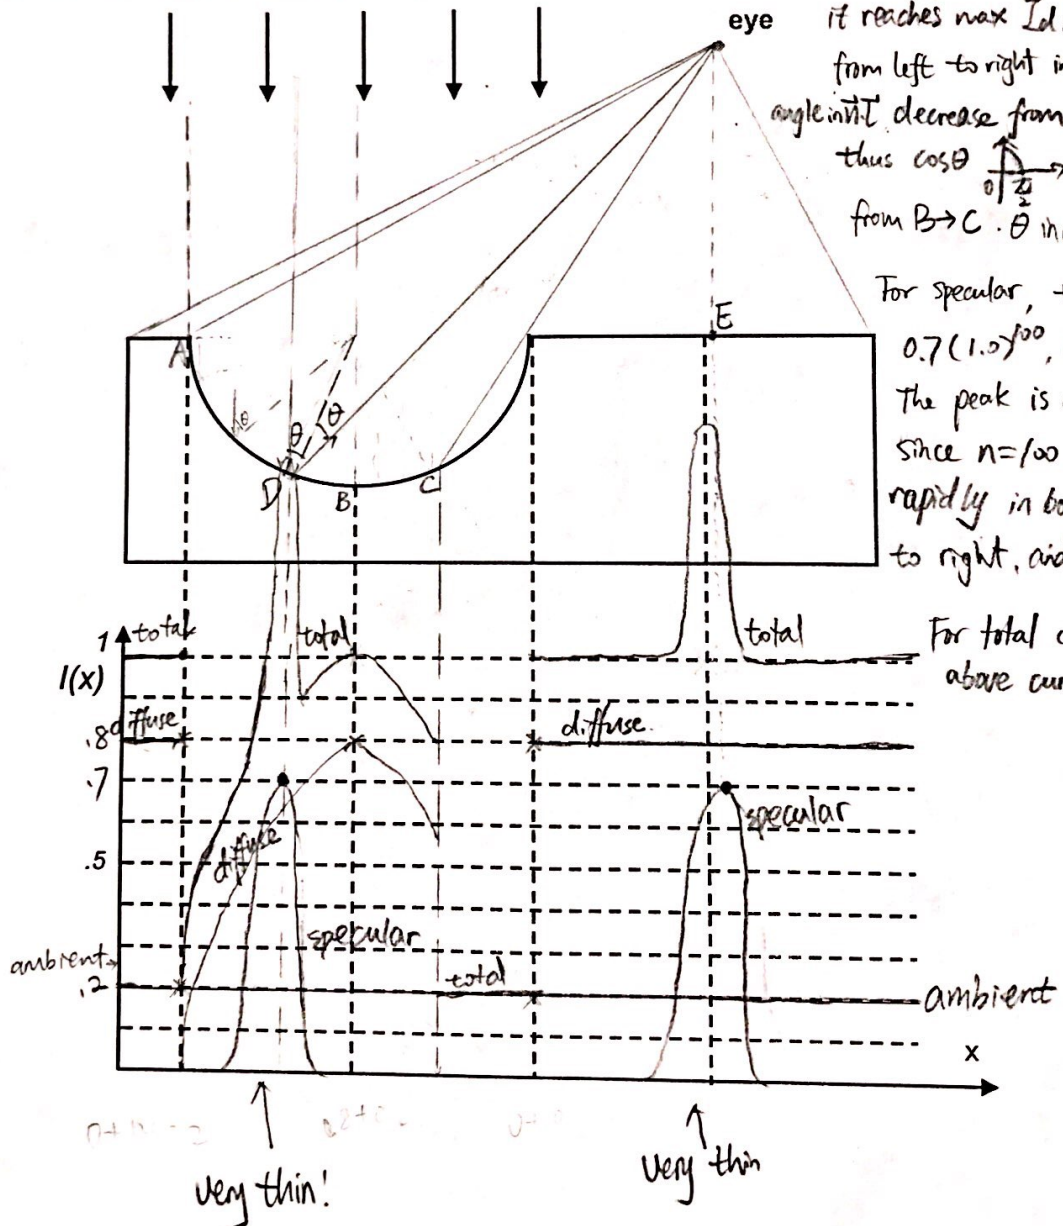 eye
it reaches max Id.
from left to right in
angle in n⃗·l⃗ decrease from
thus cosθ
0 π/2
from B→C . θ in
For specular,
0.7(1.0)^100,
The peak is
since n=100
rapidly in bo
to right, and
For total c
above cur
A
E
θ
θ
θ
D
B
C
1
total
total
total
I(x)
diffuse
diffuse.
.8
.7
specular
diffuse
.5
specular
ambient→
total
.2
ambient
x
very thin!
very thin